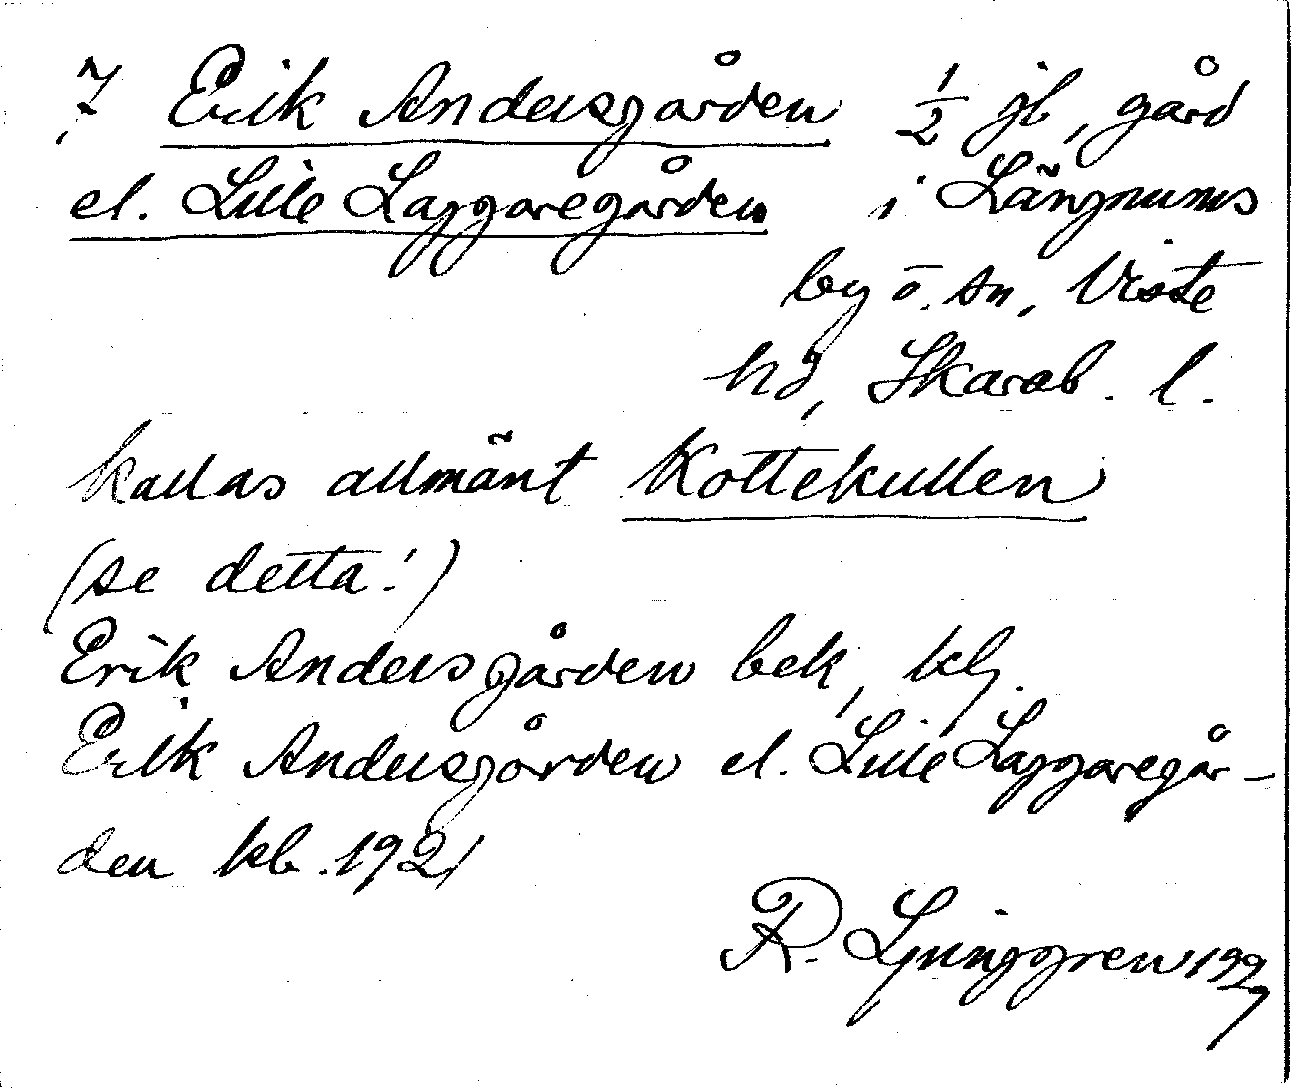 7 Erik Andersgården 1/2 jb, gård
el. Lille Laggaregården i Längnums
by ö. sn, Viste
hd, Skarab. l.
kallas allmänt Kottekullen
(se detta!)
Erik Andersgården bek, klj.
Erik Andersgården el. Lille Laggaregår-
den kb. 1921
R. Ljunggren 1927